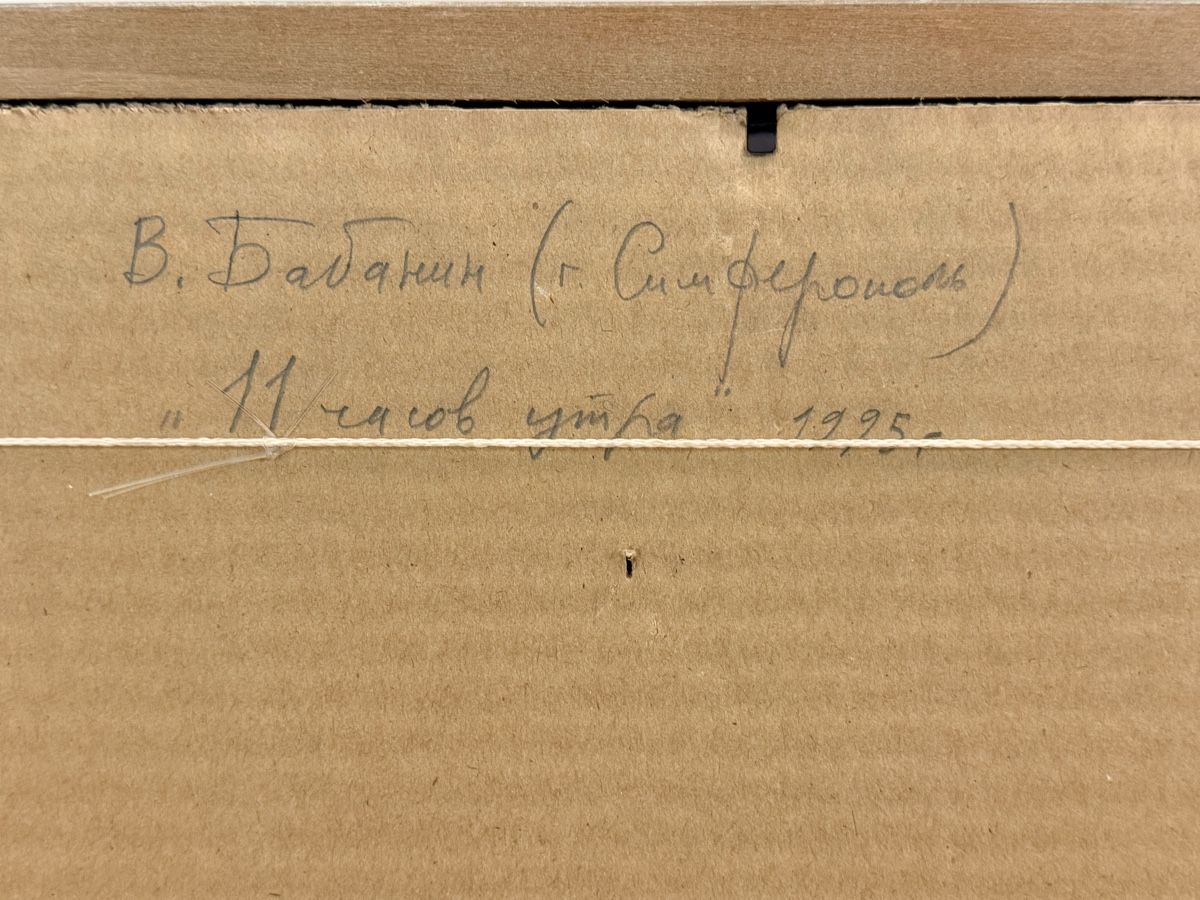 В. Бабанин (г. Симферополь)
„11 часов утра" 1995г.